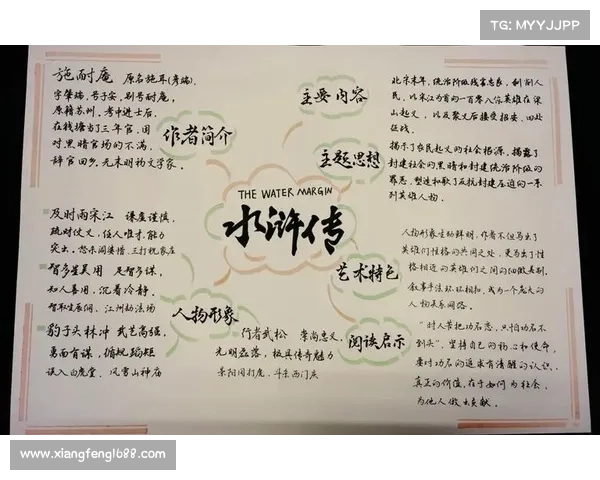 TG: MYYJJPP
施耐庵 原名施耳(彦端)
字肇端,号子安,别号耐庵,
原籍苏州,考中进士后,
在钱塘当了三年官,因
对黑暗官场的不满,
辞官回乡,元末明初文学家。
作者简介
主要内容
北宋末年,统治阶级残害忠良,剥削人
民,以宋江为首的一百零八位英雄在梁
山起义,以及聚义后接受招安、四处
征战。
主题思想
揭示了农民起义的社会根源,揭露了
封建社会的黑暗和封建统治阶级的
罪恶,塑造和歌了反抗封建压迫的一系
列英雄人物。
THE WATER MARGIN
水浒传
及时雨宋江 谦虚谨慎,
疏财仗义,任人唯才,能力
突出。怒杀阎婆惜、三打祝家庄
智多星吴用 足智多谋,
知人善用,沉着冷静。
智取生辰纲、江州劫法场
豹子头林冲 武艺高强,
勇而有谋,循规蹈矩
误入白虎堂、风雪山神庙
人物形象
行者武松 崇尚忠义,
光明磊落,极具传奇魅力
景阳冈打虎、斗杀西门庆
艺术特色
人物形象生动鲜明,作者不但写出了
英雄们性格的共同之处,更写出了性
格相近的英雄们之间的细微差别,
叙事手法环环相扣,成为一个庞大的
人物关系网络。
阅读启示
"时人苦把功名恋,只怕功名不
到头",坚持自己的初心和使命,
要对功名的追求有清醒的认识,
真正的价值,在于如何为社会、
为他人做出贡献。
www.xiangfeng168.com